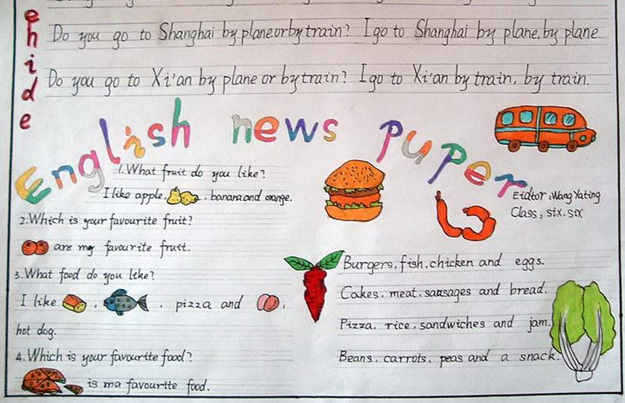 ehide
Do you go to Shanghai by plane or by train? I go to Shanghai by plane, by plane.
Do you go to Xi'an by plane or by train? I go to Xi'an by train, by train.
English news puper
1. What fruit do you like?
I like apple, , banana and orange.
Eidtor: Wang Yating
Class: six. six
2. Which is your favourite fruit?
are my favourite fruit.
3. What food do you like?
I like , , pizza and ,
hot dog.
4. Which is your favourite food?
is ma favourite food.
Burgers, fish, chicken and eggs.
Cakes, meat, sausages and bread.
Pizza, rice, sandwiches and jam.
Beans, carrots, peas and a snack.